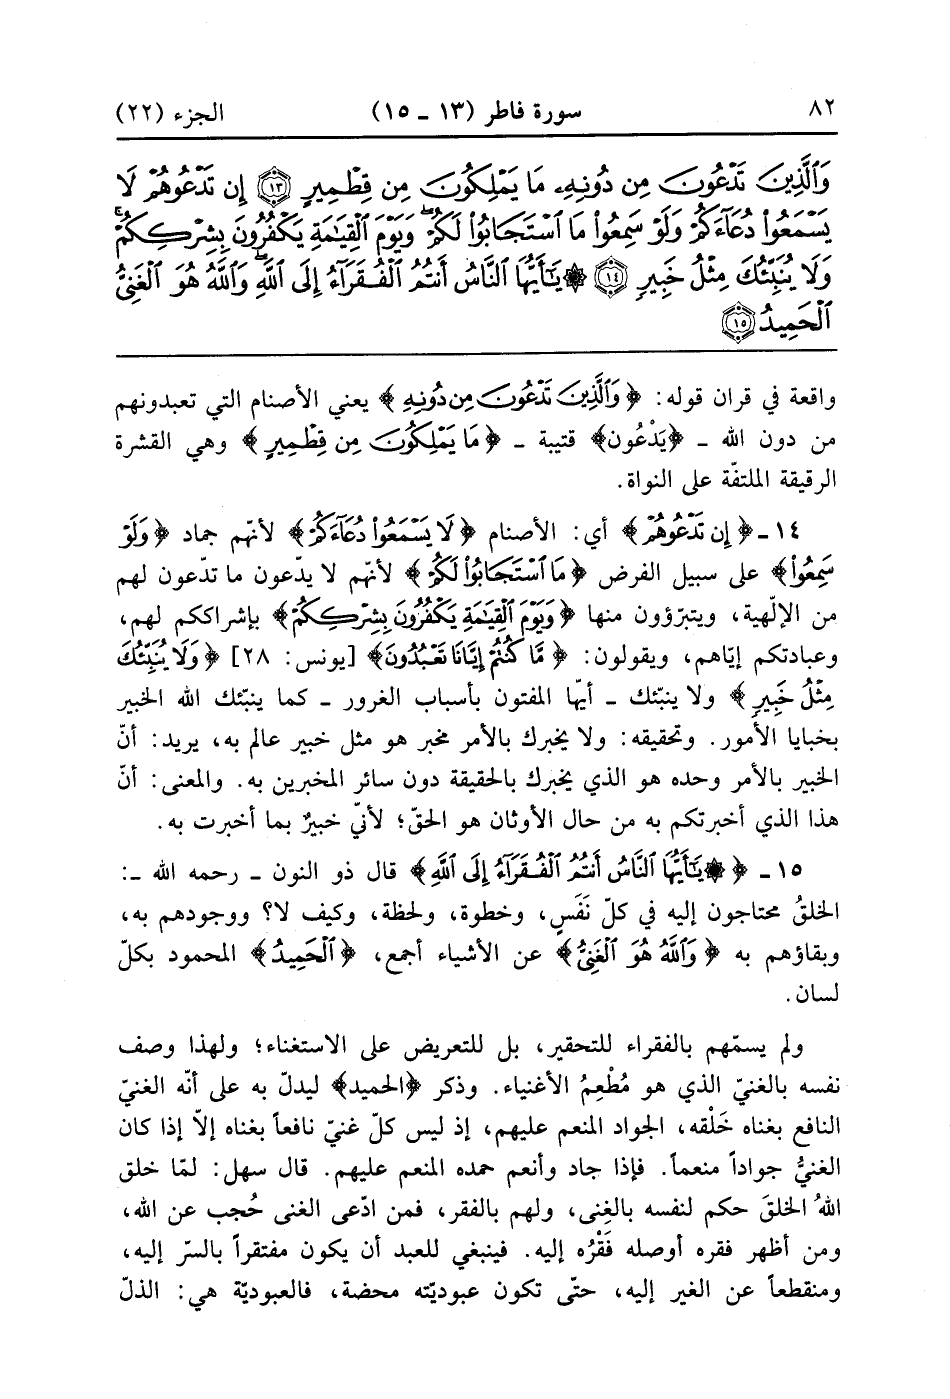 ٨٢ سورة فاطر (١٣ ـ ١٥) الجزء (٢٢)
وَٱلَّذِينَ تَدْعُونَ مِن دُونِهِۦ مَا يَمْلِكُونَ مِن قِطْمِيرٍ ١٣ إِن تَدْعُوهُمْ لَا
يَسْمَعُوا۟ دُعَآءَكُمْ وَلَوْ سَمِعُوا۟ مَا ٱسْتَجَابُوا۟ لَكُمْ ۖ وَيَوْمَ ٱلْقِيَـٰمَةِ يَكْفُرُونَ بِشِرْكِكُمْ ۚ
وَلَا يُنَبِّئُكَ مِثْلُ خَبِيرٍ ١٤ ۞ يَـٰٓأَيُّهَا ٱلنَّاسُ أَنتُمُ ٱلْفُقَرَآءُ إِلَى ٱللَّهِ ۖ وَٱللَّهُ هُوَ ٱلْغَنِىُّ
ٱلْحَمِيدُ ١٥
واقعة في قران قوله: ﴿وَٱلَّذِينَ تَدْعُونَ مِن دُونِهِۦ﴾ يعني الأصنام التي تعبدونهم
من دون الله ـ ﴿يَدْعُون﴾ قتيبة ـ ﴿مَا يَمْلِكُونَ مِن قِطْمِيرٍ﴾ وهي القشرة
الرقيقة الملتفّة على النواة.
١٤ ـ ﴿إِن تَدْعُوهُمْ﴾ أي: الأصنام ﴿لَا يَسْمَعُوا۟ دُعَآءَكُمْ﴾ لأنهم جماد ﴿وَلَوْ
سَمِعُوا۟﴾ على سبيل الفرض ﴿مَا ٱسْتَجَابُوا۟ لَكُمْ﴾ لأنهم لا يدّعون ما تدّعون لهم
من الإلٰهية، ويتبرّؤون منها ﴿وَيَوْمَ ٱلْقِيَـٰمَةِ يَكْفُرُونَ بِشِرْكِكُمْ﴾ بإشراككم لهم،
وعبادتكم إيّاهم، ويقولون: ﴿مَّا كُنتُمْ إِيَّانَا تَعْبُدُونَ﴾ [يونس: ٢٨] ﴿وَلَا يُنَبِّئُكَ
مِثْلُ خَبِيرٍ﴾ ولا ينبّئك ـ أيّها المفتون بأسباب الغرور ـ كما ينبّئك الله الخبير
بخبايا الأمور. وتحقيقه: ولا يخبرك بالأمر مخبر هو مثل خبير عالم به، يريد: أنّ
الخبير بالأمر وحده هو الذي يخبرك بالحقيقة دون سائر المخبرين به. والمعنى: أنّ
هذا الذي أخبرتكم به من حال الأوثان هو الحقّ؛ لأنّي خبيرٌ بما أخبرت به.
١٥ ـ ﴿۞ يَـٰٓأَيُّهَا ٱلنَّاسُ أَنتُمُ ٱلْفُقَرَآءُ إِلَى ٱللَّهِ﴾ قال ذو النون ـ رحمه الله ـ:
الخلقُ محتاجون إليه في كلّ نَفَسٍ، وخطوة، ولحظة، وكيف لا؟ ووجودهم به،
وبقاؤهم به ﴿وَٱللَّهُ هُوَ ٱلْغَنِىُّ﴾ عن الأشياء أجمع، ﴿ٱلْحَمِيدُ﴾ المحمود بكلّ
لسان.
ولم يسمّهم بالفقراء للتحقير، بل للتعريض على الاستغناء؛ ولهذا وصف
نفسه بالغنيّ الذي هو مُطْعِمُ الأغنياء. وذكر ﴿الحميد﴾ ليدلّ به على أنّه الغنيّ
النافع بغناه خَلْقه، الجواد المنعم عليهم، إذ ليس كلّ غنيّ نافعاً بغناه إلاّ إذا كان
الغنيُّ جواداً منعماً. فإذا جاد وأنعم حمده المنعم عليهم. قال سهل: لمّا خلق
اللهُ الخلقَ حكم لنفسه بالغِنى، ولهم بالفقر، فمن ادّعى الغنى حُجب عن الله،
ومن أظهر فقره أوصله فَقْرُه إليه. فينبغي للعبد أن يكون مفتقراً بالسرّ إليه،
ومنقطعاً عن الغير إليه، حتّى تكون عبوديّته محضة، فالعبوديّة هي: الذلّ